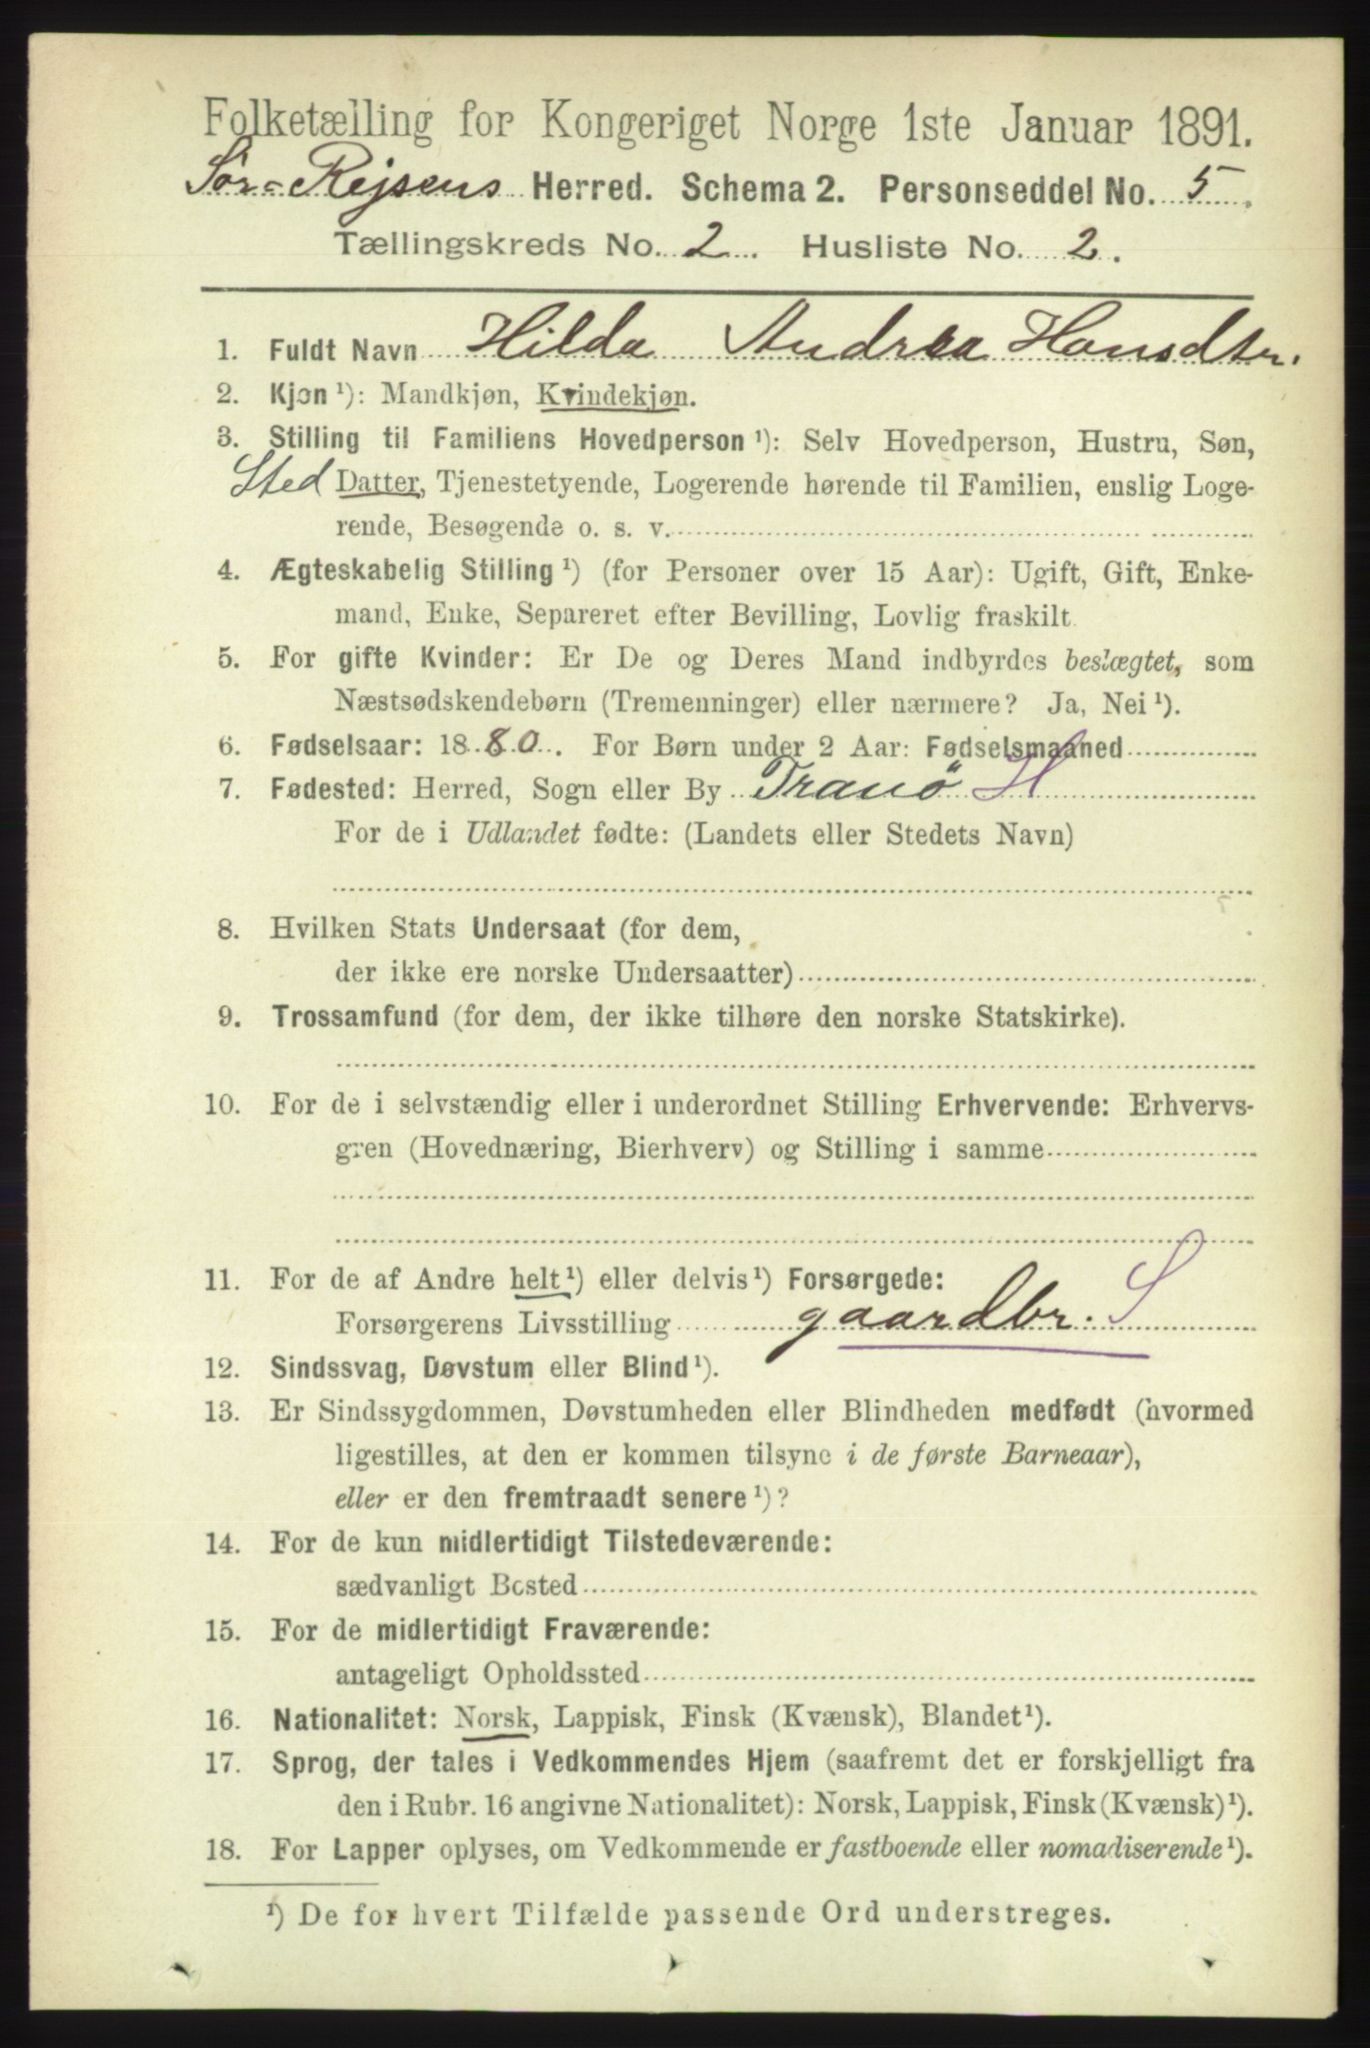 Folketælling for Kongeriget Norge 1ste Januar 1891.
Sør-Rejsens Herred. Schema 2. Personseddel No. 5.
Tællingskreds No. 2. Husliste No. 2.
1. Fuldt Navn Hilda Andrea Hansdtr.
2. Kjøn ¹): Mandkjøn, Kvindekjøn.
3. Stilling til Familiens Hovedperson ¹): Selv Hovedperson, Hustru, Søn,
Sted Datter, Tjenestetyende, Logerende hørende til Familien, enslig Loge-
rende, Besøgende o. s. v.
4. Ægteskabelig Stilling ¹) (for Personer over 15 Aar): Ugift, Gift, Enke-
mand, Enke, Separeret efter Bevilling, Lovlig fraskilt
5. For gifte Kvinder: Er De og Deres Mand indbyrdes beslægtet, som
Næstsødskendebørn (Tremenninger) eller nærmere? Ja, Nei ¹).
6. Fødselsaar: 1880. For Børn under 2 Aar: Fødselsmaaned
7. Fødested: Herred, Sogn eller By Tranö H
For de i Udlandet fødte: (Landets eller Stedets Navn)
8. Hvilken Stats Undersaat (for dem,
der ikke ere norske Undersaatter)
9. Trossamfund (for dem, der ikke tilhøre den norske Statskirke).
10. For de i selvstændig eller i underordnet Stilling Erhvervende: Erhvervs-
gren (Hovednæring, Bierhverv) og Stilling i samme
11. For de af Andre helt ¹) eller delvis ¹) Forsørgede:
Forsørgerens Livsstilling gaardbr. S
12. Sindssvag, Døvstum eller Blind ¹).
13. Er Sindssygdommen, Døvstumheden eller Blindheden medfødt (hvormed
ligestilles, at den er kommen tilsyne i de første Barneaar),
eller er den fremtraadt senere ¹)?
14. For de kun midlertidigt Tilstedeværende:
sædvanligt Bosted
15. For de midlertidigt Fraværende:
antageligt Opholdssted
16. Nationalitet: Norsk, Lappisk, Finsk (Kvænsk), Blandet ¹).
17. Sprog, der tales i Vedkommendes Hjem (saafremt det er forskjelligt fra
den i Rubr. 16 angivne Nationalitet): Norsk, Lappisk, Finsk (Kvænsk) ¹).
18. For Lapper oplyses, om Vedkommende er fastboende eller nomadiserende ¹).
¹) De for hvert Tilfælde passende Ord understreges.